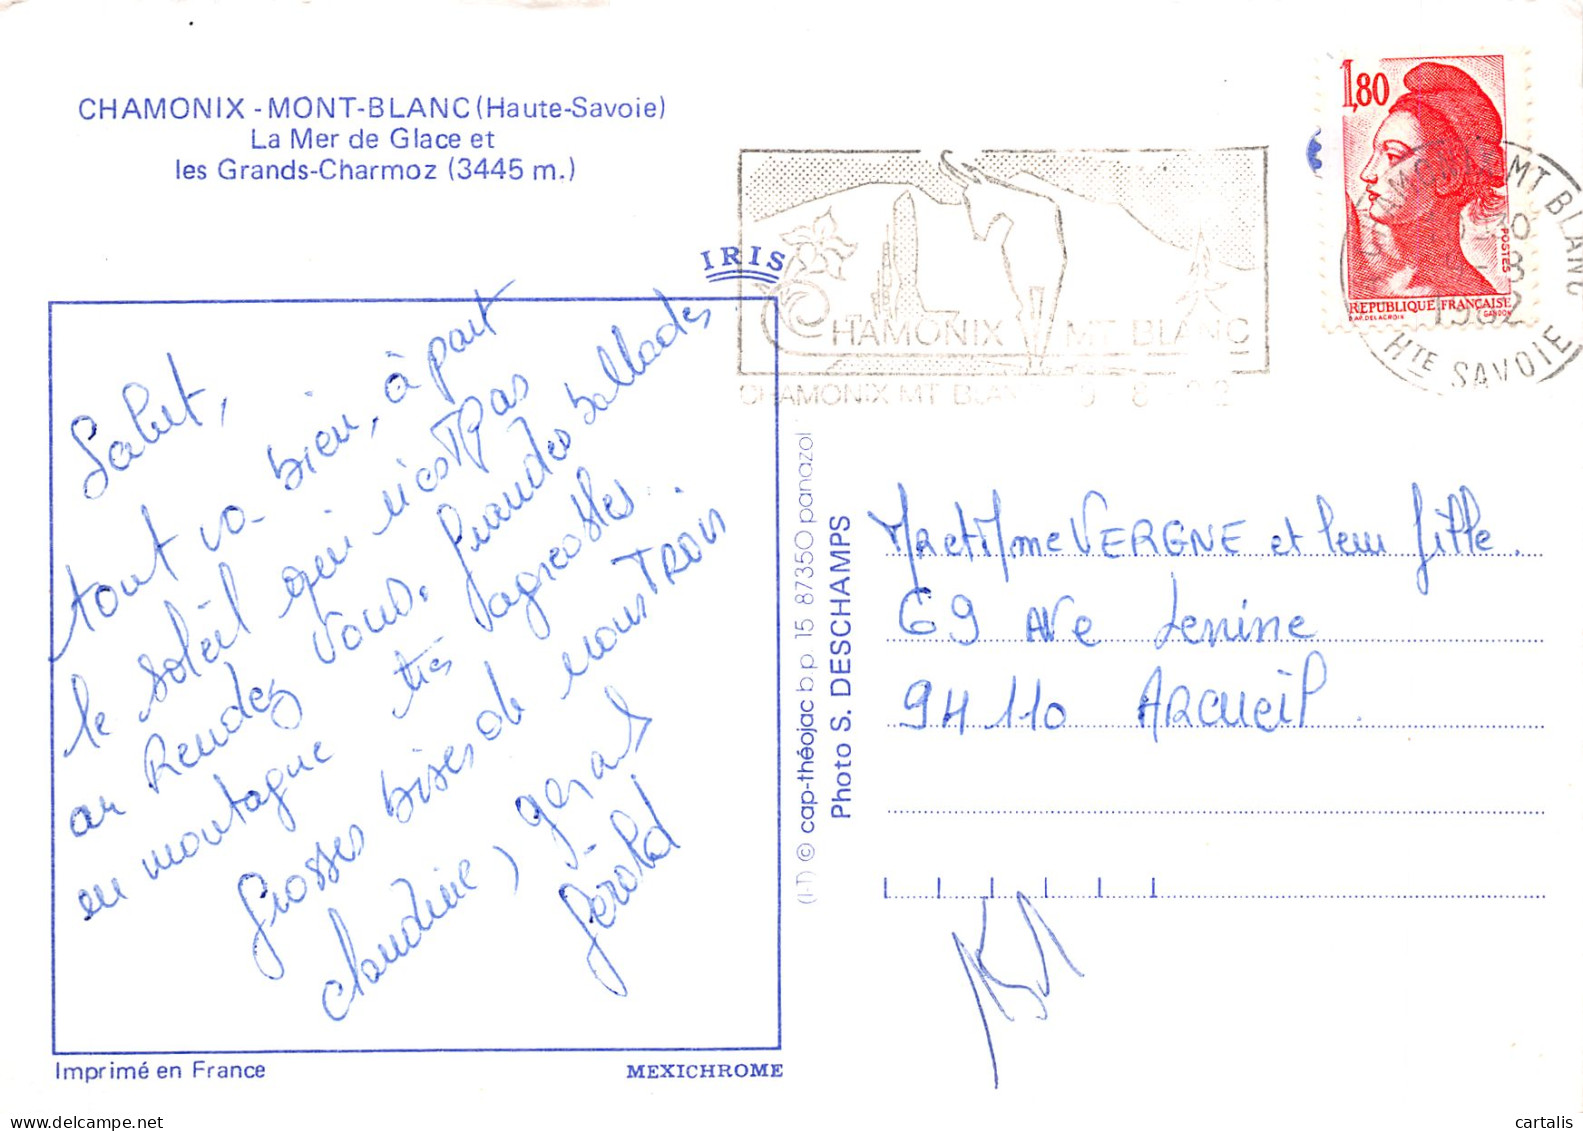 CHAMONIX - MONT-BLANC (Haute-Savoie)
La Mer de Glace et
les Grands-Charmoz (3445 m.)
IRIS
Salut,
tout va bien, à part
le soleil qui n'est pas
au Rendez vous. Grandes ballades
en montagne très agréables.
Grosses bises de nous TROIS
claudine, gérard
Gérold
Imprimé en France
MEXICHROME
(I-T) © cap-théojac b.p. 15 87350 panazol
Photo S. DESCHAMPS
CHAMONIX MT BLANC
CHAMONIX MT BLANC
1,80
POSTES
REPUBLIQUE FRANÇAISE
D'AP. DELACROIX
GANDON
CHAMONIX MT BLANC
1982
HTE SAVOIE
Mr et Mme VERGNE et leur fille.
69 AVe Lenine
94110 ARCUEIL
cartalis
delcampe.net